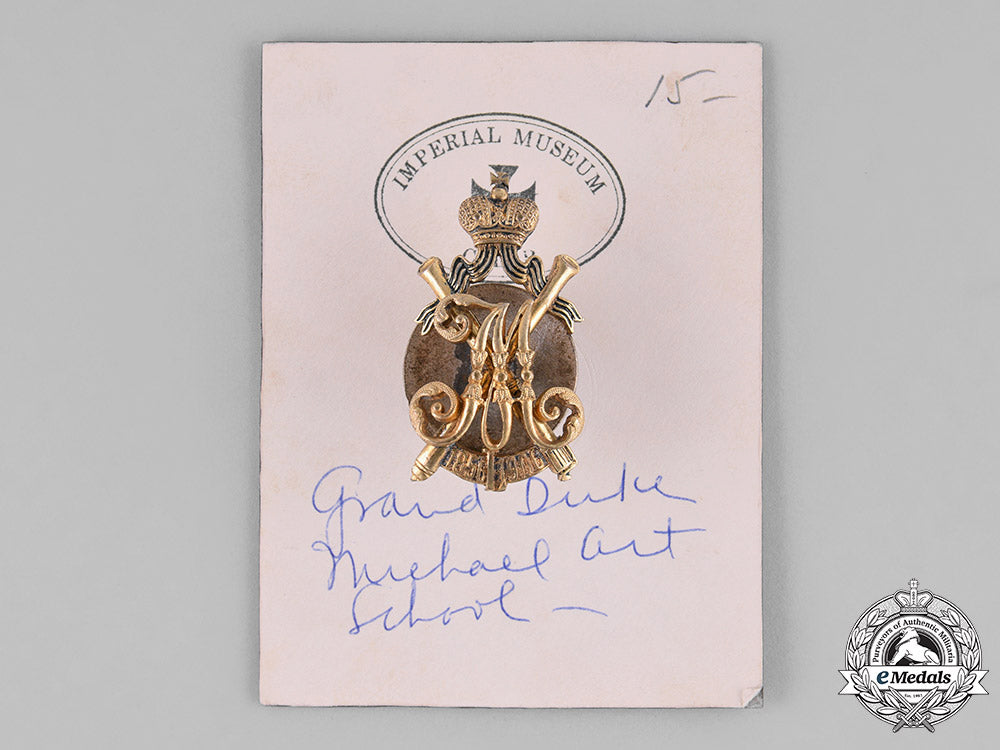 15-
IMPERIAL MUSEUM
Grand Duke
Michael Art
School -
Purveyors of Authentic Militaria
eMedals